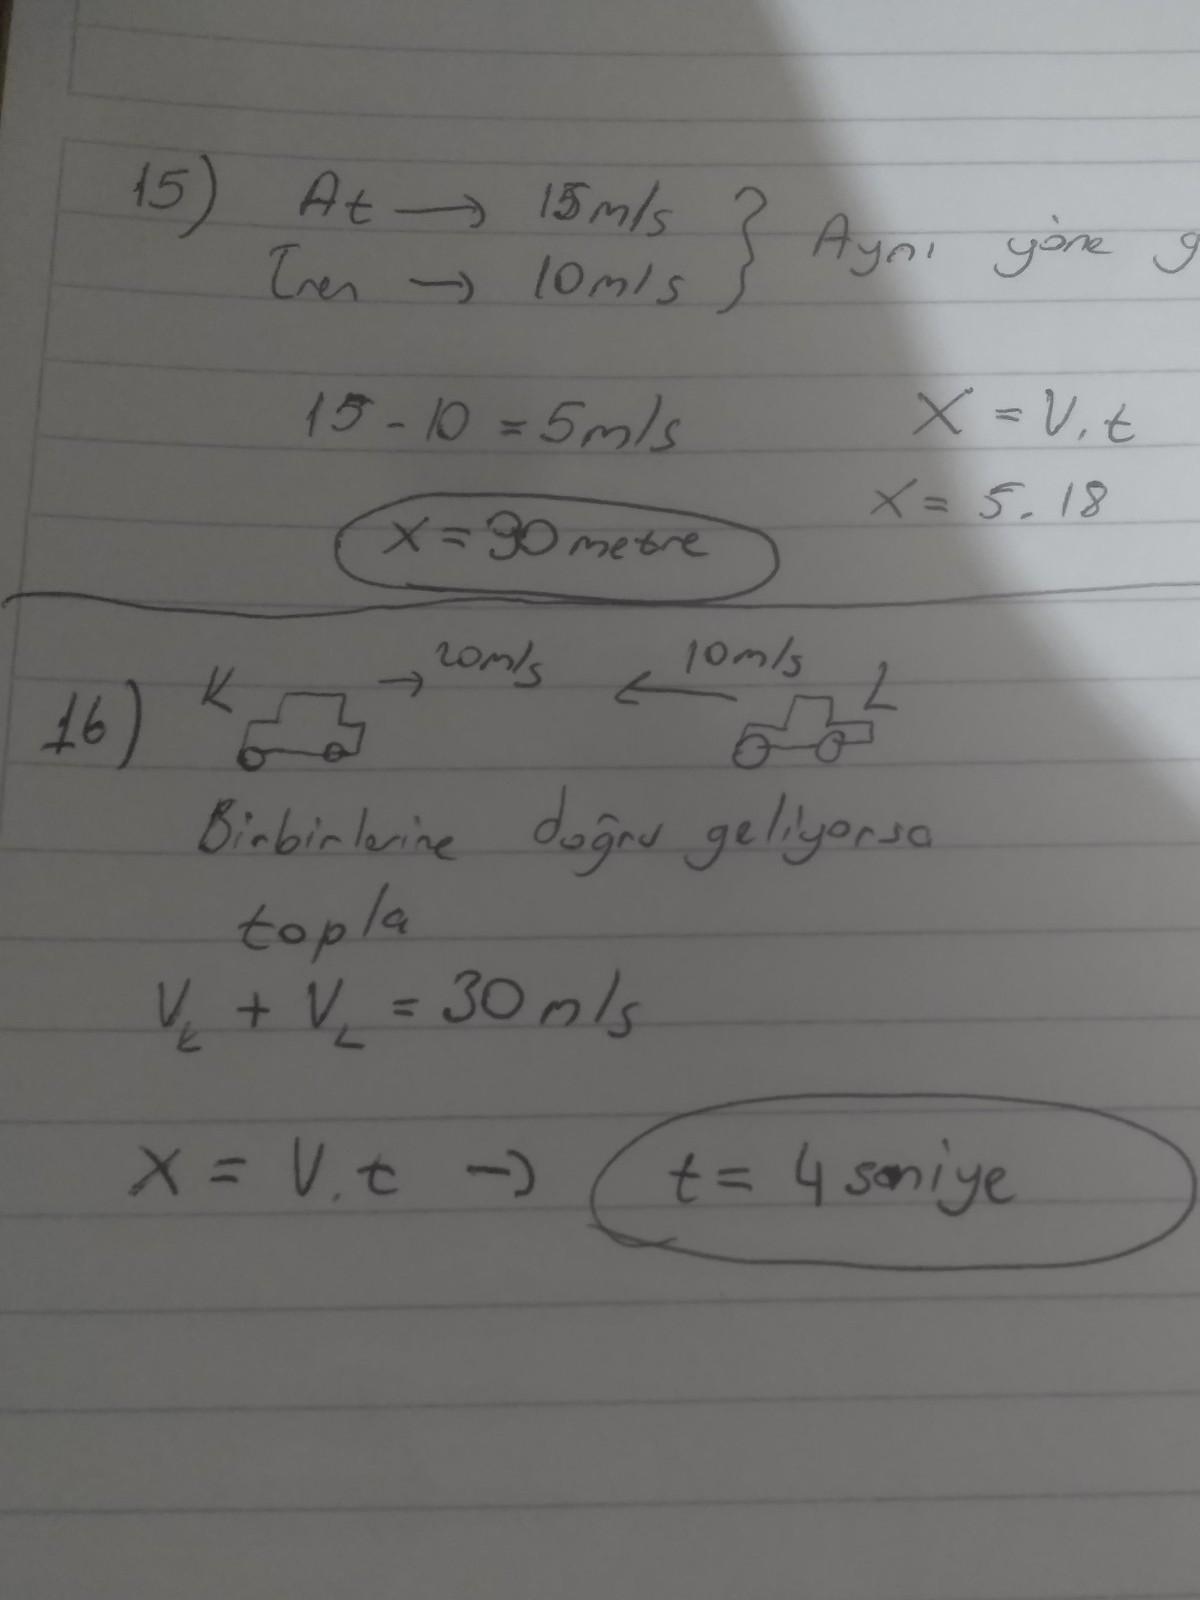 15) At → 15m/s } Aynı yöne g
Tren → 10m/s
15 - 10 = 5m/s
X = V.t
X = 5.18
X = 90 metre
K → 20m/s ← 10m/s L
16)
Birbirlerine doğru geliyorsa
topla
VK + VL = 30 m/s
X = V.t → t = 4 saniye